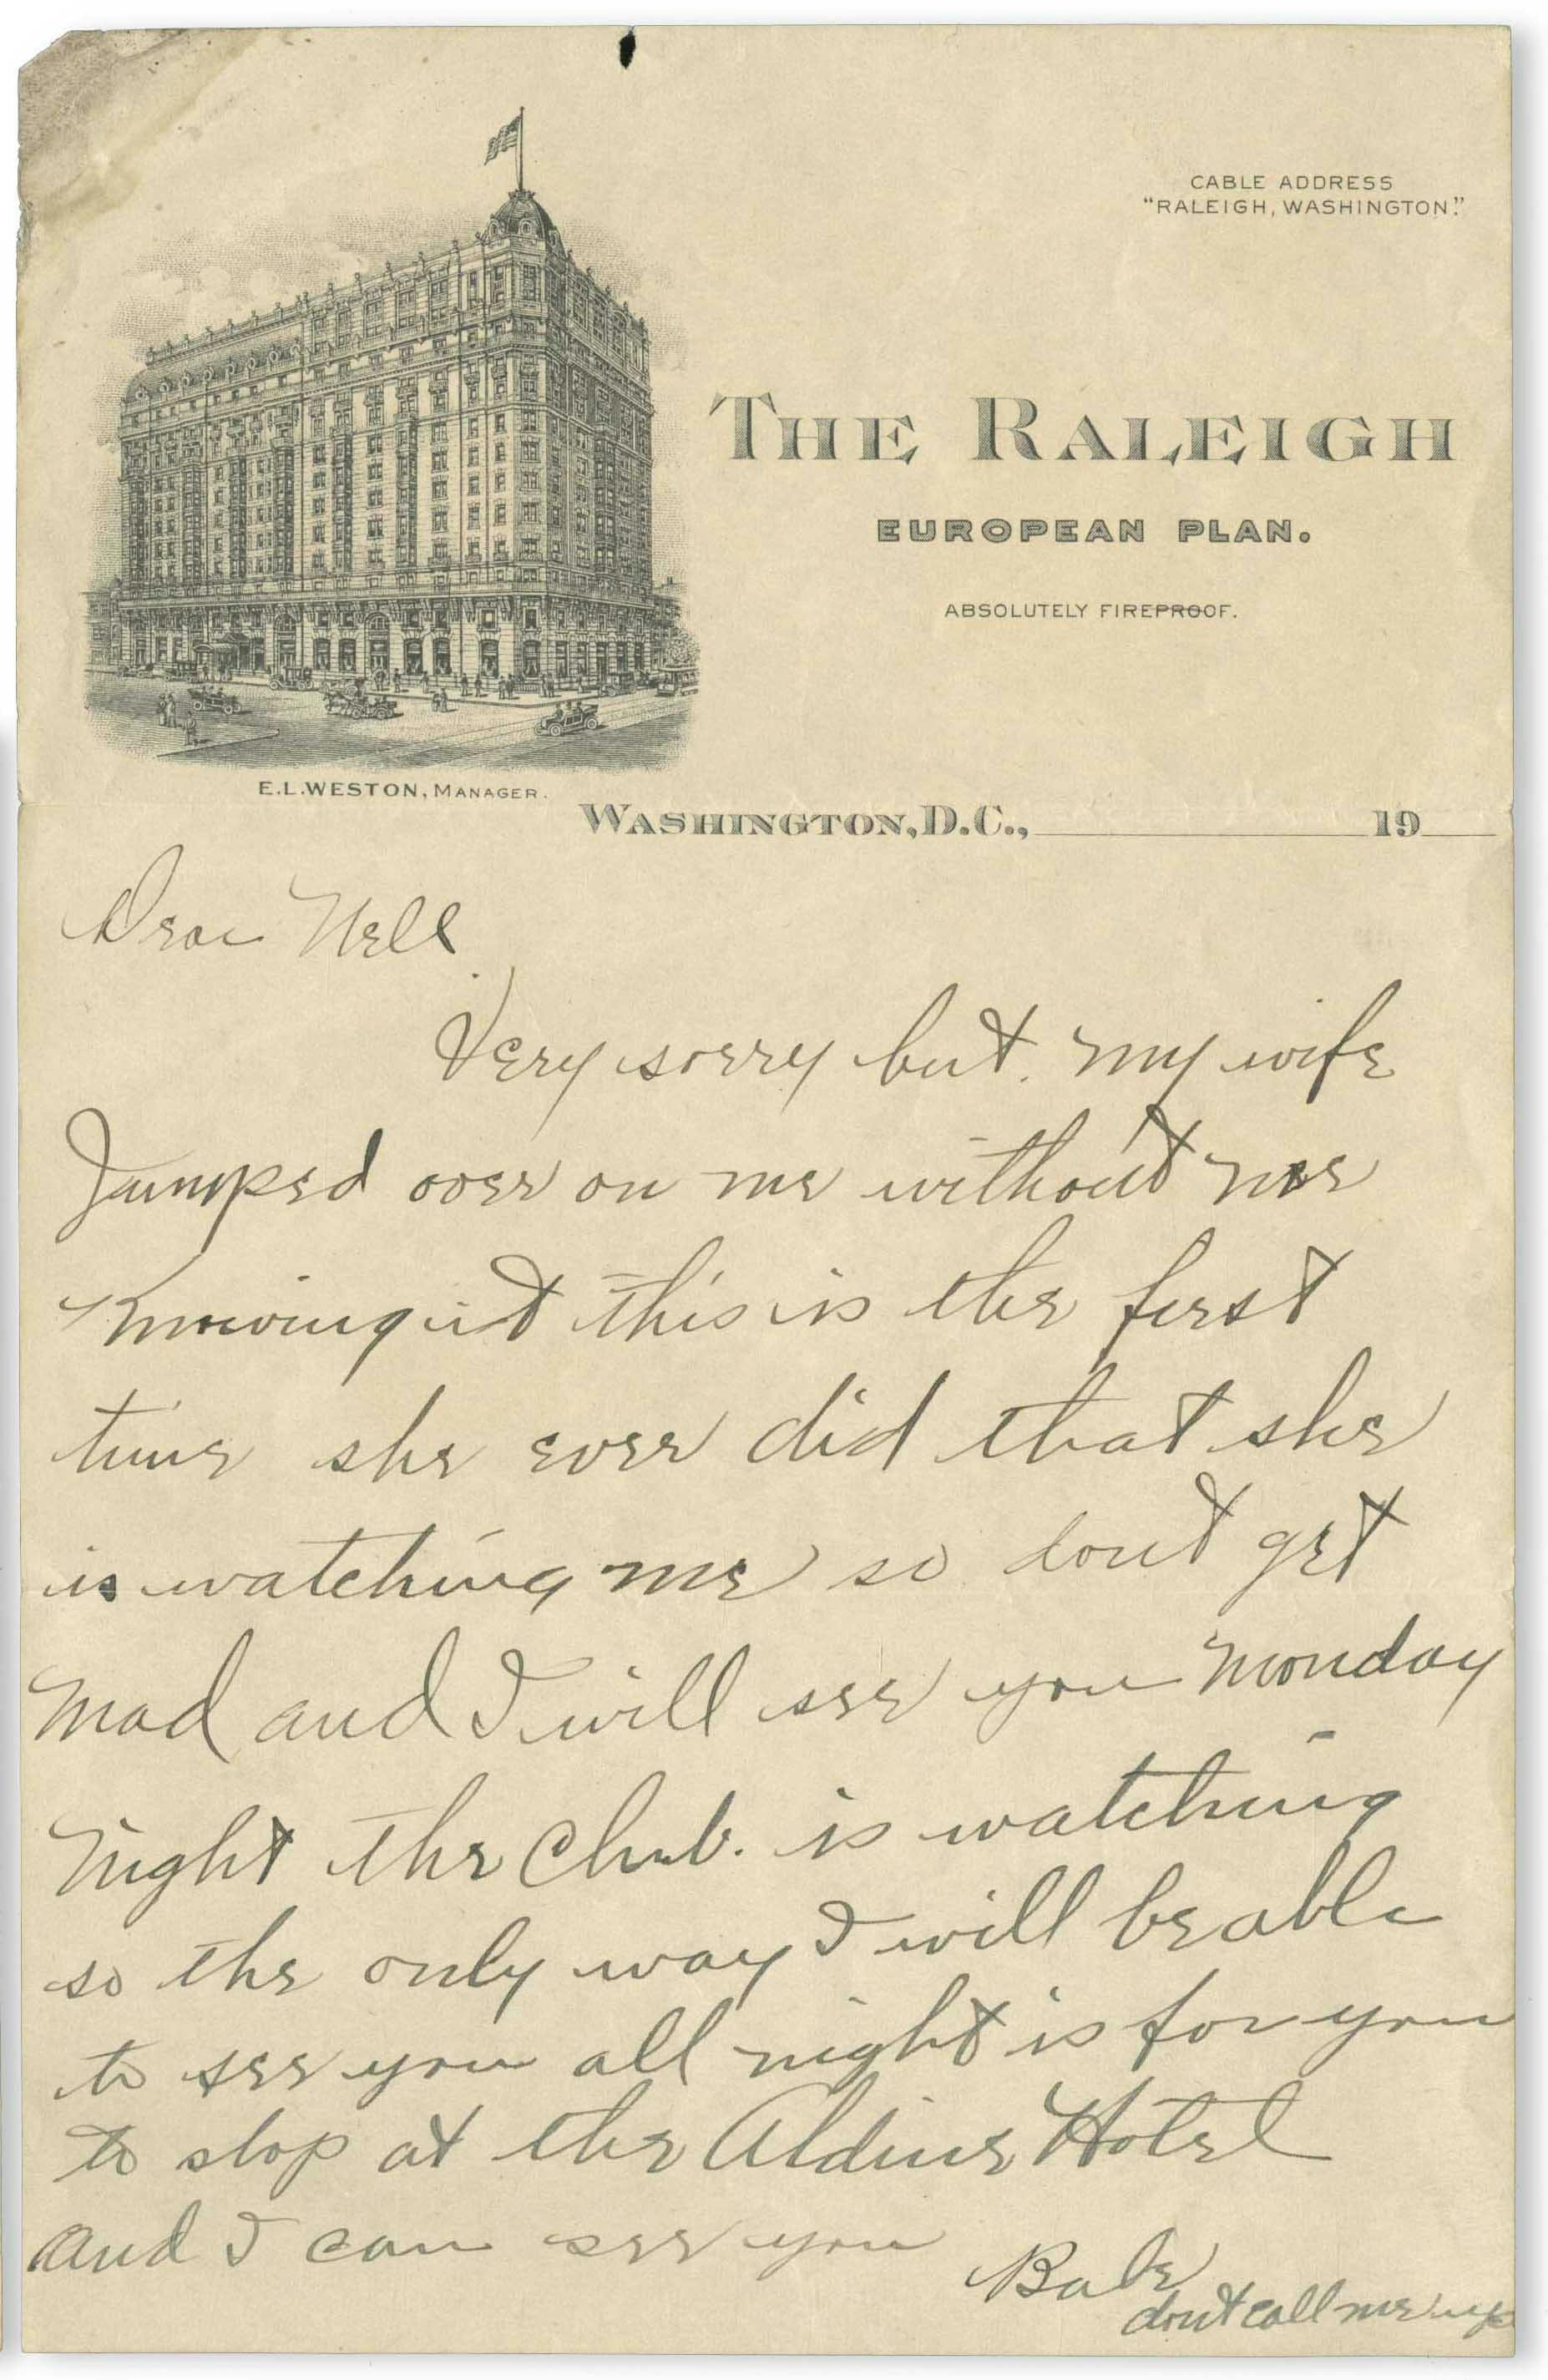 CABLE ADDRESS
"RALEIGH, WASHINGTON."
THE RALEIGH
EUROPEAN PLAN.
ABSOLUTELY FIREPROOF.
E.L.WESTON, MANAGER.
WASHINGTON, D.C., 19
Dear Nell
Very sorry but. my wife
Jumped over on me without me
Knowing it this is the first
time she ever did that she
is watching me so dont get
mad and I will see you monday
night the Club. is watching
so the only way I will be able
to see you all night is for you
to stop at the Aldine Hotel
and I can see you
Babe
dont call me up